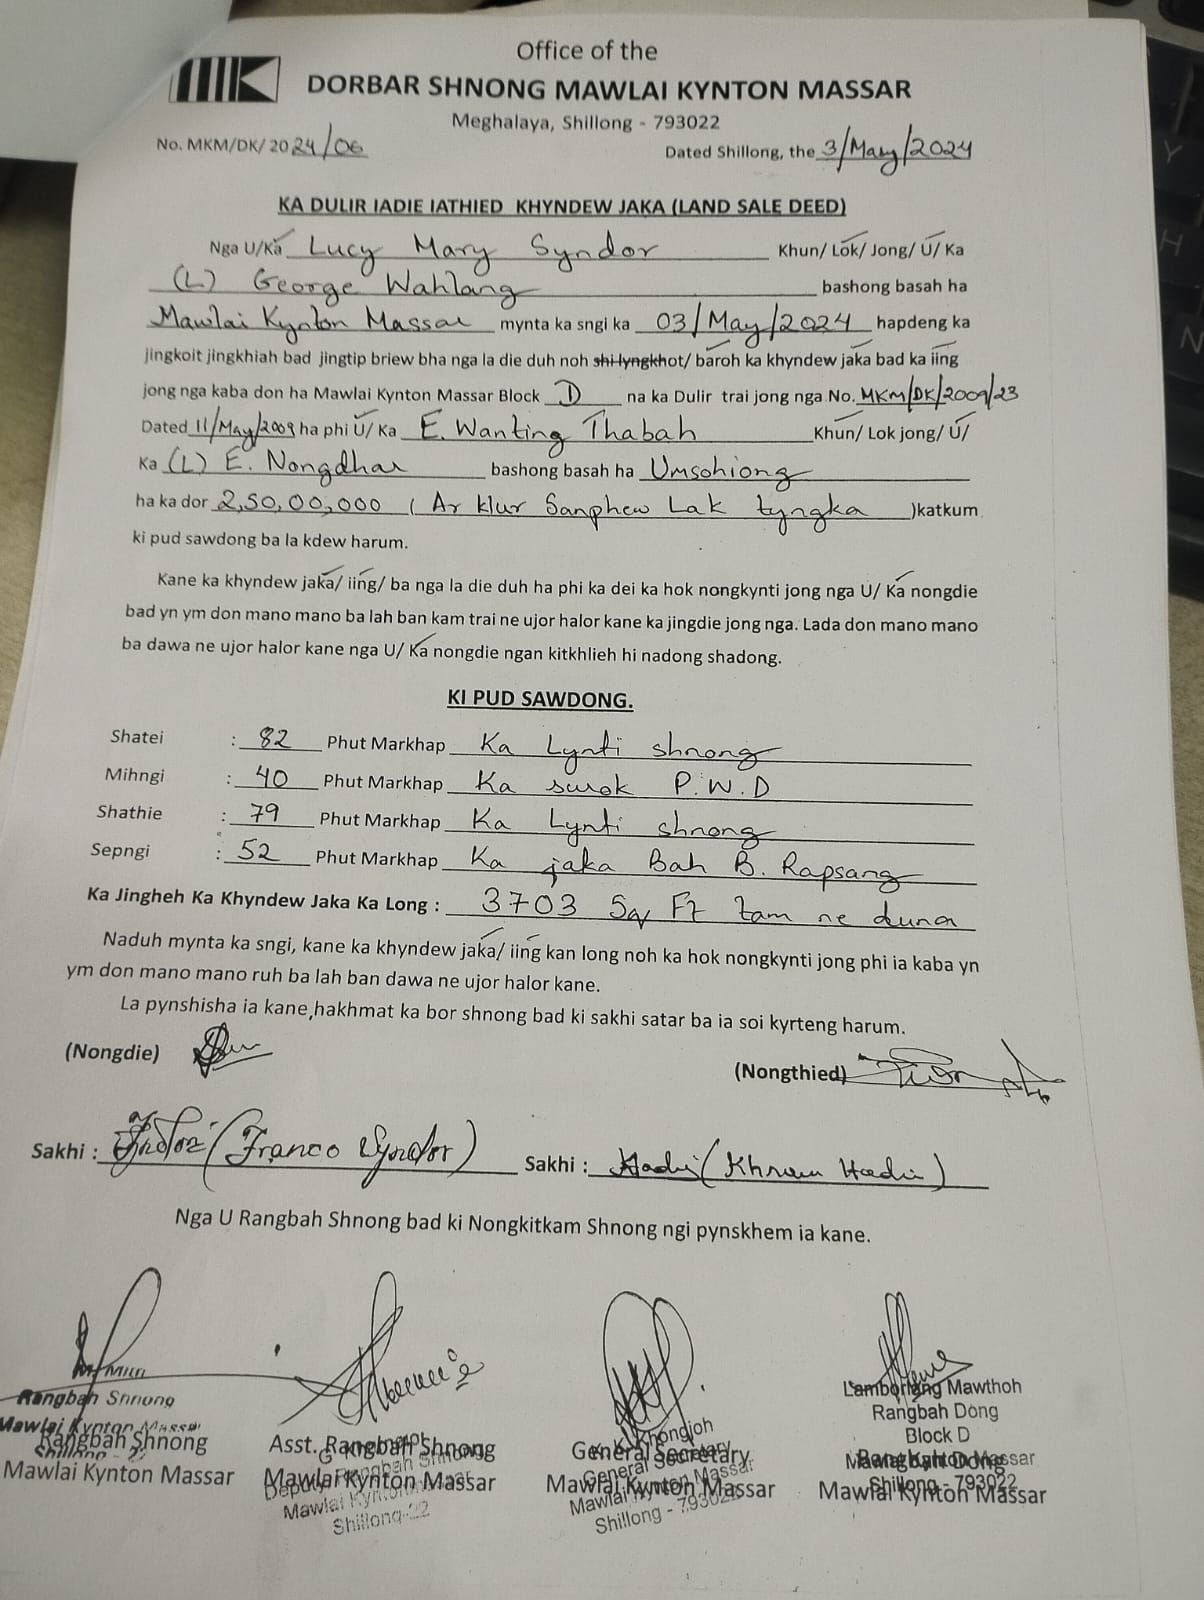 Office of the
DORBAR SHNONG MAWLAI KYNTON MASSAR
Meghalaya, Shillong - 793022
No. MKM/DK/ 2024/06 Dated Shillong, the 3/May/2024
KA DULIR IADIE IATHIED KHYNDEW JAKA (LAND SALE DEED)
Nga U/Ka Lucy Mary Syndor Khun/ Lok/ Jong/ U/ Ka
(L) George Wahlang bashong basah ha
Mawlai Kynton Massar mynta ka sngi ka 03/May/2024 hapdeng ka
jingkoit jingkhiah bad jingtip briew bha nga la die duh noh shi lyngkhot/ baroh ka khyndew jaka bad ka iing
jong nga kaba don ha Mawlai Kynton Massar Block D na ka Dulir trai jong nga No. MKM/DK/2009/23
Dated 11/May/2009 ha phi U/ Ka E. Wanting Thabah Khun/ Lok jong/ U/
Ka (L) E. Nongdhar bashong basah ha Umsohiong
ha ka dor 2,50,00,000 ( Ar klur Sanphew Lak tyngka )katkum
ki pud sawdong ba la kdew harum.
Kane ka khyndew jaka/ iing/ ba nga la die duh ha phi ka dei ka hok nongkynti jong nga U/ Ka nongdie
bad yn ym don mano mano ba lah ban kam trai ne ujor halor kane ka jingdie jong nga. Lada don mano mano
ba dawa ne ujor halor kane nga U/ Ka nongdie ngan kitkhlieh hi nadong shadong.
KI PUD SAWDONG.
Shatei : 82 Phut Markhap Ka Lynti shnong
Mihngi : 40 Phut Markhap Ka surok P.W.D
Shathie : 79 Phut Markhap Ka Lynti shnong
Sepngi : 52 Phut Markhap Ka jaka Bah B. Rapsang
Ka Jingheh Ka Khyndew Jaka Ka Long : 3703 Sq Ft tam ne duna
Naduh mynta ka sngi, kane ka khyndew jaka/ iing kan long noh ka hok nongkynti jong phi ia kaba yn
ym don mano mano ruh ba lah ban dawa ne ujor halor kane.
La pynshisha ia kane,hakhmat ka bor shnong bad ki sakhi satar ba ia soi kyrteng harum.
(Nongdie) (Nongthied)
Sakhi : (Franco Syndor) Sakhi :
Nga U Rangbah Shnong bad ki Nongkitkam Shnong ngi pynskhem ia kane.
Rangbah Shnong
Mawlai Kynton Massar
Rangbah Shnong
Mawlai Kynton Massar
Asst. Rangbah Shnong
Mawlai Kynton Massar
Shillong-22
Khongjoh
General Secretary
General Secretary
Mawlai Kynton Massar
Mawlai Kynton Massar
Shillong - 793022
Lamborlang Mawthoh
Rangbah Dong
Block D
Mawlai Kynton Massar
Rangbah Dong
Shillong - 793022
Mawlai Kynton Massar